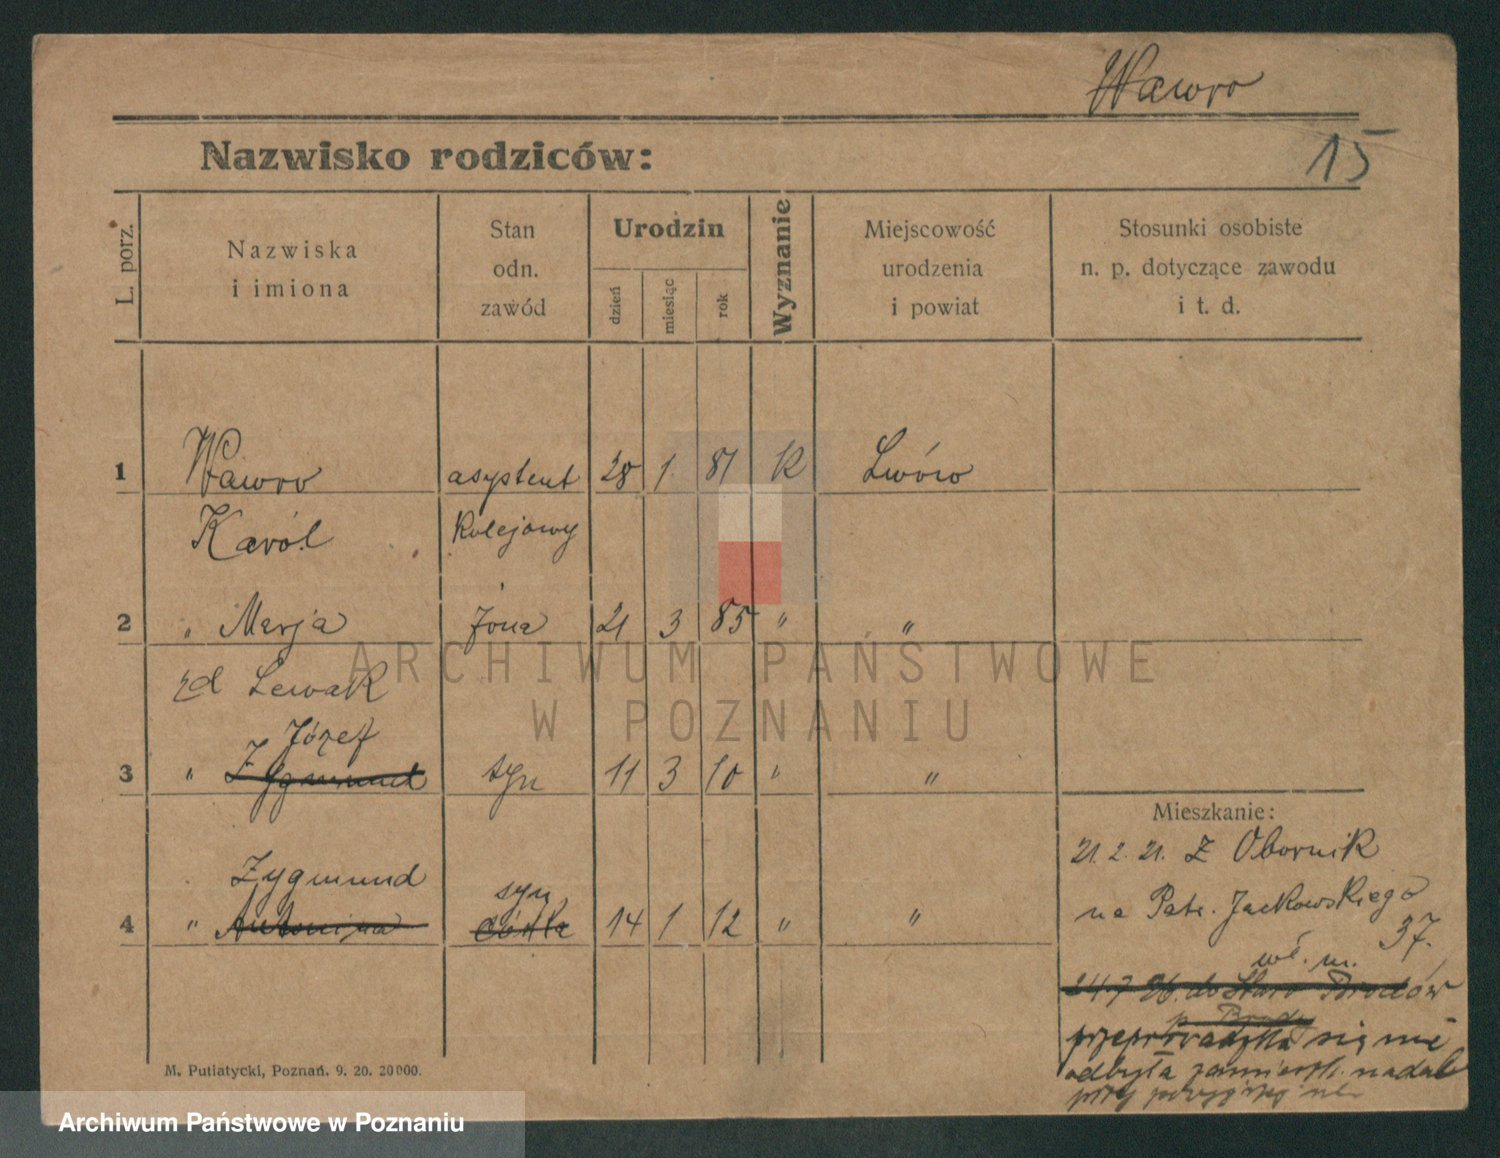 Wawro
15
Nazwisko rodziców:
L. porz.
Nazwiska
i imiona
Stan
odn.
zawód
Urodzin
dzień
miesiąc
rok
Wyznanie
Miejscowość
urodzenia
i powiat
Stosunki osobiste
n. p. dotyczące zawodu
i t. d.
1 Wawro asystent 28 1 81 K Lwów
Karól Kolejowy
2 " Marja żona 21 3 85 " "
zd Lewak
Józef
3 " Zygmund syn 11 3 10 " "
Zygmund syn
4 " Antonina córka 14 1 12 " "
Mieszkanie:
21. 2. 21. z Obornik
na Patr. Jackowskiego
37.
wł. m.
24.7 26. do Staro Brodów
p. Brody
przeprowadzka się nie
odbyła zamieszk. nadal
przy
M. Putiatycki, Poznań. 9. 20. 20000.
ARCHIWUM PAŃSTWOWE
W POZNANIU
Archiwum Państwowe w Poznaniu